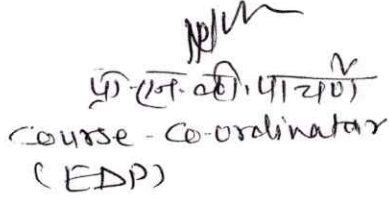 प्रा. एन. व्ही. पाचर्णे
Course-Co-ordinatar
(EDP)